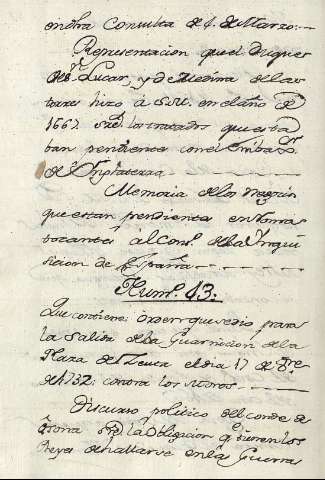 en otra Consulta de 1. de Marzo.
Representacion que el Duque
de Sn. Lucar, y de Medina de las
torres hizo à S.M. en el año de
1667. sre. los tratados que esta
ban pendientes con el Embaxr.
de Inglaterra
Memoria de los negocios
que estan pendientes en Roma
tocantes al Consº. de la Inqui
sicion de España
Numº. 43.
Que contiene: orden que se dio para
la Salida de la Guarnicion de la
Plaza de Zeuta el dia 17 de 8re
de 1732: contra los Moros.
Discurso politico del conde de
sre. la obligacion q. tienen los
Reyes de hallarse en las Guerras